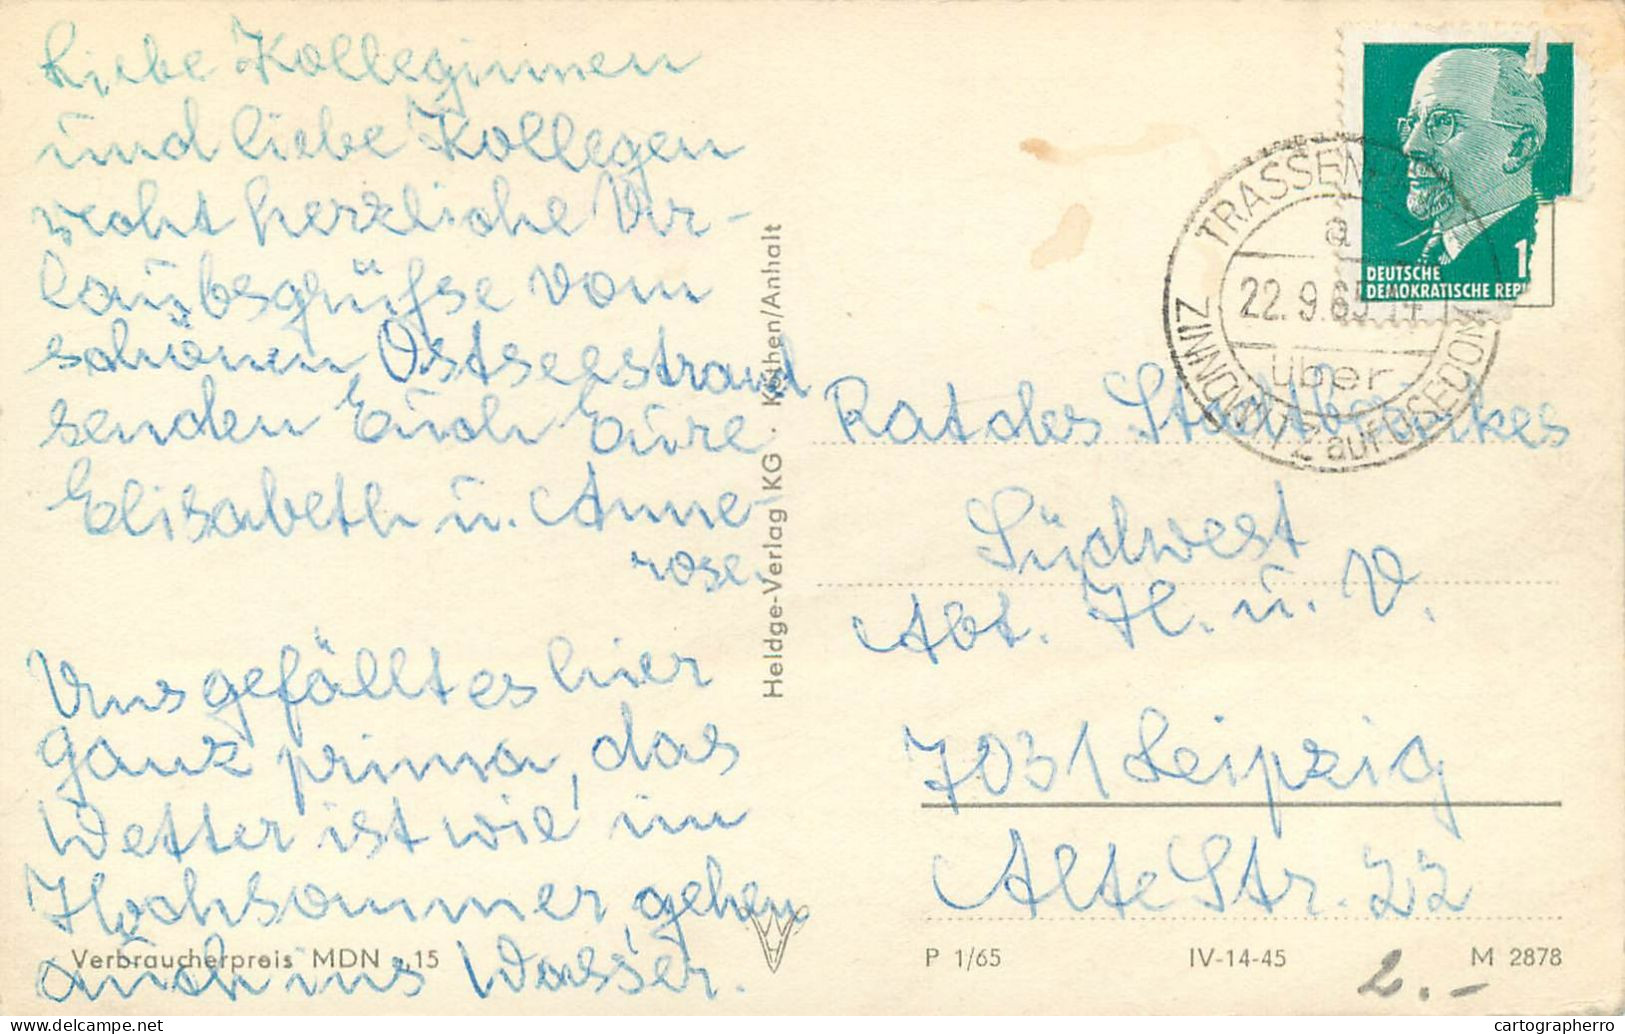 Liebe Kolleginnen
und liebe Kollegen
recht herzliche Ur-
laubsgrüße vom
schönen Ostseestrand
senden Euch Eure
Elisabeth u. Anne-
rose.
Uns gefällt es hier
ganz prima, das
Wetter ist wie im
Hochsommer, gehen
auch ins Wasser.
Verbraucherpreis MDN -,15
Heldge-Verlag KG · Köthen/Anhalt
DEUTSCHE
DEMOKRATISCHE REPU
1
TRASSENHEIDE
a
22.9.65-14
über
ZINNOWITZ auf USEDOM
Rat des Stadtbezirkes
Südwest
Abt. H. u. V.
7031 Leipzig
Alte Str. 22
P 1/65
IV-14-45
M 2878
2.-
cartographerro